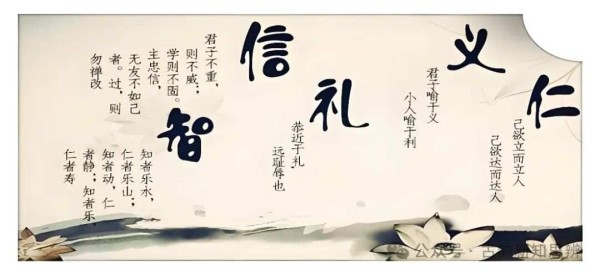 仁
己欲立而立人
己欲达而达人
义
君子喻于义
小人喻于利
礼
恭近于礼
远耻辱也
信
君子不重，
则不威；
学则不固。
主忠信，
无友不如己
者。过，则
勿禅改
智
知者乐水，
仁者乐山；
知者动，仁
者静；知者乐，
仁者寿
公众号